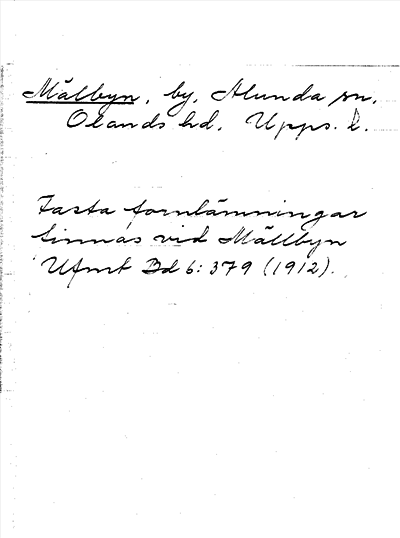 Mälbyn, by, Alunda sn,
Olands hd, Upps. l.
Fasta fornlämningar
finnas vid Mällbyn
Ufmt Bd 6: 379 (1912).